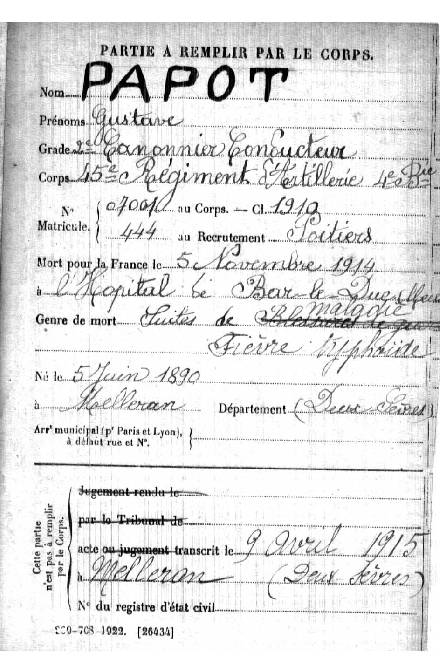 PARTIE A REMPLIR PAR LE CORPS.
Nom PAPOT
Prénoms Gustave
Grade 2e Canonnier Conducteur
Corps 45e Régiment d'Artillerie 4e Bie
N° Matricule. { au Corps. — Cl. 1910
444 au Recrutement Poitiers
Mort pour la France le 5 Novembre 1914
à l'Hopital de Bar-le-Duc (Meuse
Genre de mort Suites de Blessures de guerre maladie
Fièvre typhoide
Né le 5 Juin 1890
à Melleran Département (Deux Sèvres)
Arrt municipal (pr Paris et Lyon), à défaut rue et N°. {
Cette partie n'est pas à remplir par le Corps.
Jugement rendu le
par le Tribunal de
acte ou jugement transcrit le 9 Avril 1915
à Melleran (Deux Sèvres)
N° du registre d'état civil
-708-1922. [26434]